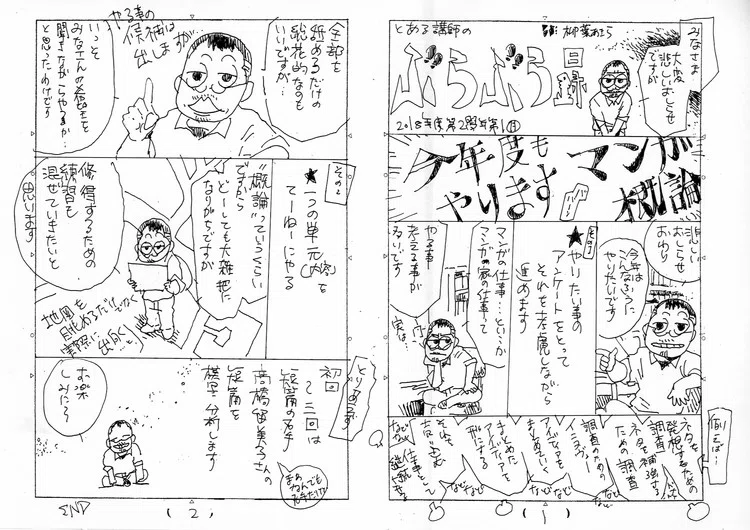 とある講師の
ぶらぶら日録
2018年度第2学年第1回
みなさま
大変
悲しいおしらせ
ですが
今年度も
やります
マンガ
概論
悲しい
おしらせ
おわり
今年は
こんなふうに
やりたいです
その1
★やりたい事の
アンケートをとって
それを考慮しながら
進めます
マンガの仕事…というか
マンガの家の仕事って
やる事
考える事が
多いです
実は…
例えば…
ネタを
発想するための
調査
ネタを補強する
ための調査
調査のための
アイデアを
まとめていく
まとめた
アイデアを
形にする
などなど
などなど
などなど
その2
★一つの単元(内容)を
てーねーにやる
“概論”っていうくらい
ですから
どーしても大雑把に
なりがちですが
修得するための
練習も
混ぜていきたいと
思います
地図を
眺めるだけでなく
実際に
出向く…
全部を
決めるだけの
総花的なのも
いいですが…
やる事の
候補は
出しますが
いっそ
みなさんの希望を
聞きながらやるか…
と思ったわけです
とりあえず
初回〜三回は
短篇の名手
高橋留美子さんの
短篇を
模写・分析します
お楽
しみに〜
END
(2)
(1)